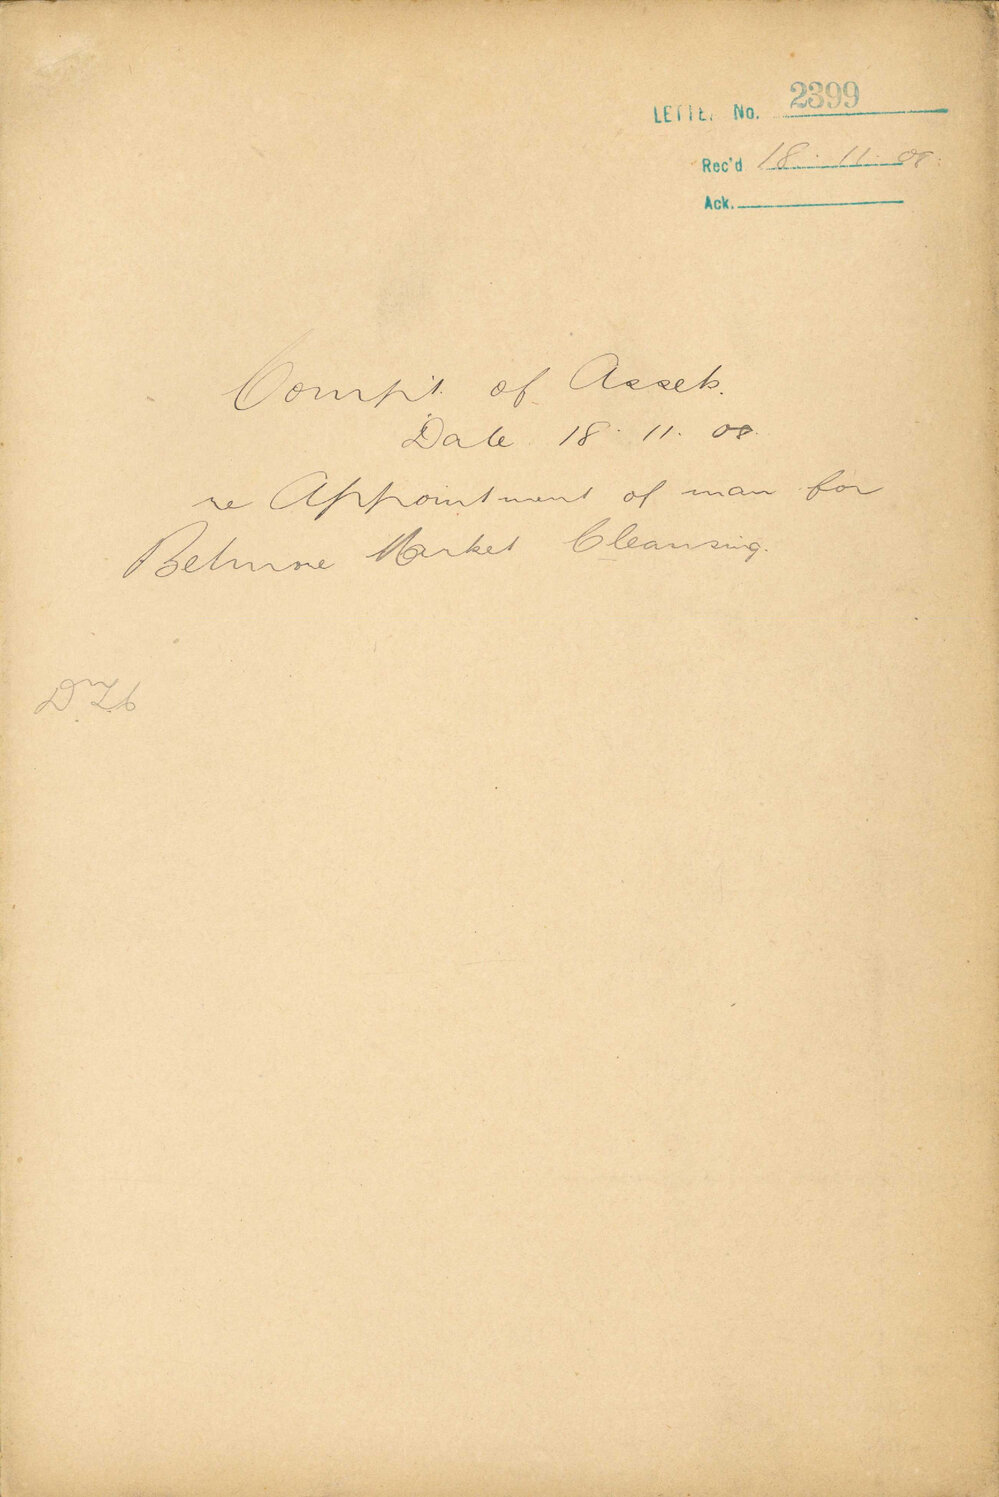 LETTE. No. 2399
Rec'd 18. 11. 08.
Ack.
Compt. of Assets.
Date 18. 11. 08.
re Appointment of man for
Belmore Market Cleansing.